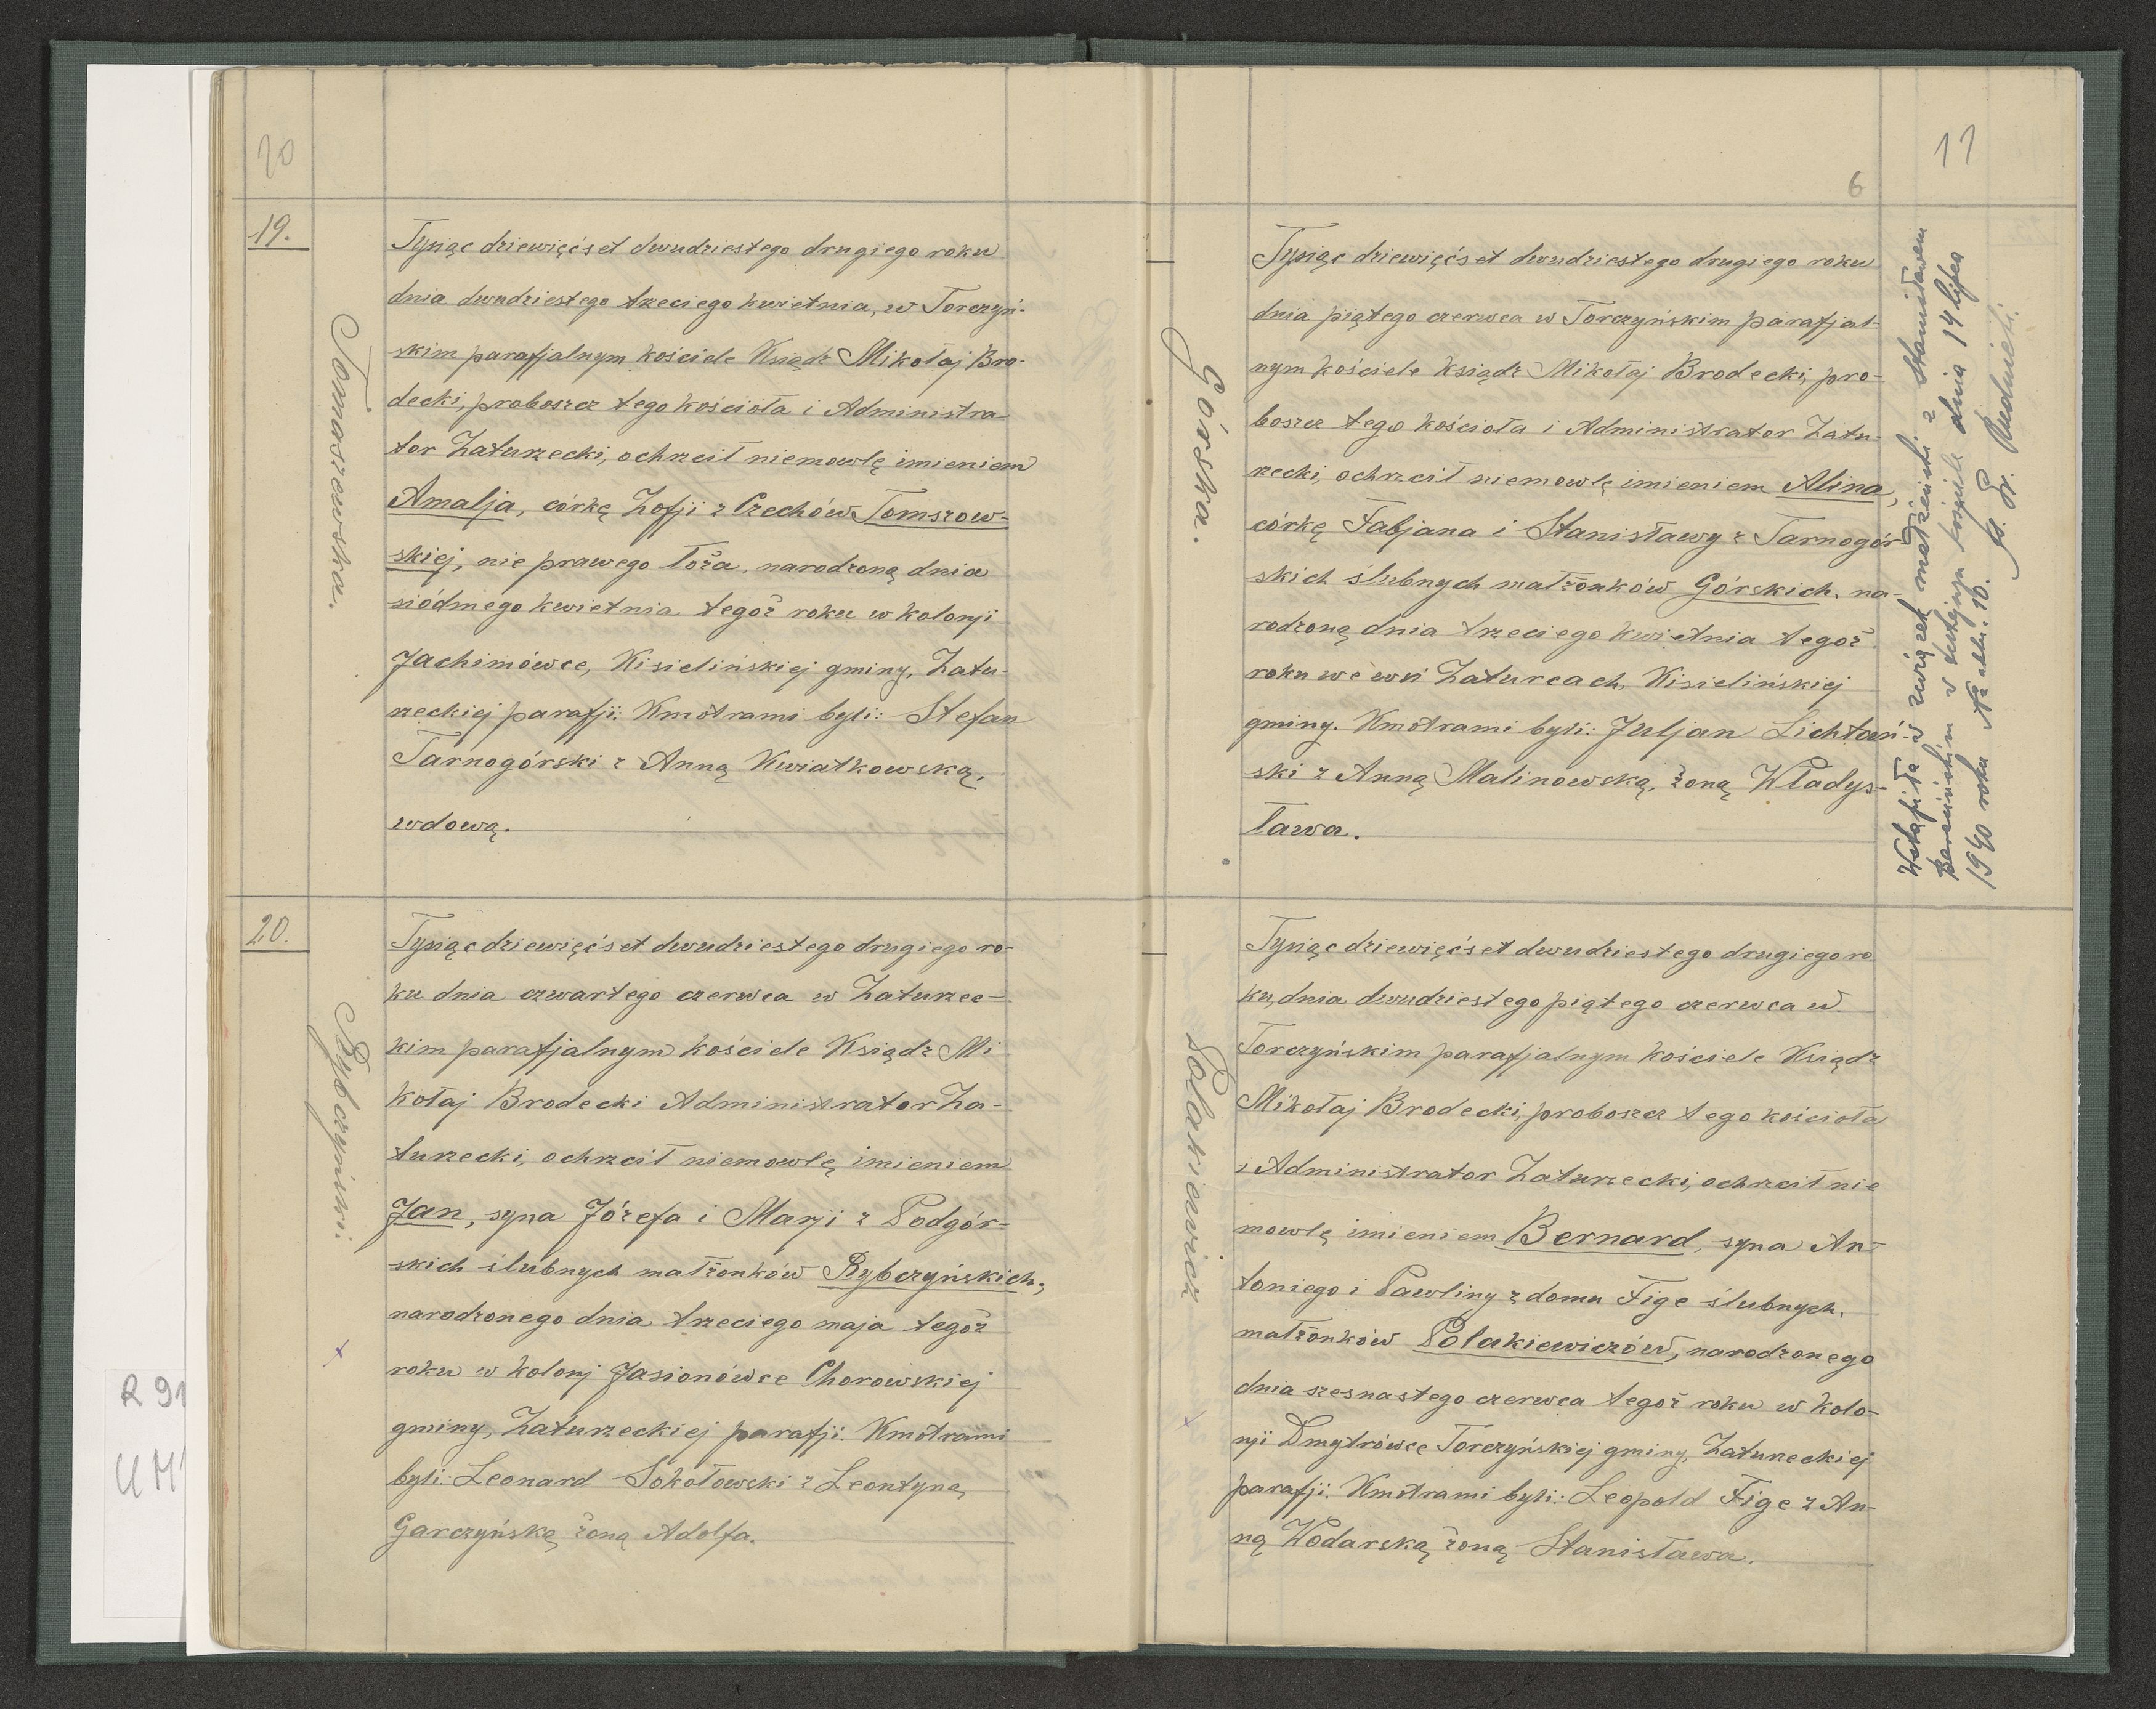 20
19.
Tomaszewska.
Tysiąc dziewięćset dwudziestego drugiego roku
dnia dwudziestego trzeciego kwietnia, w Torczyń-
skim parafjalnym kościele Ksiądz Mikołaj Bro-
decki, proboszcz tego kościoła i Administra-
tor Zaturzecki, ochrzcił niemowlę imieniem
Amalja, córkę Zofji z Czechów Tomszow-
skiej, nie prawego łoża, narodzoną dnia
siódmego kwietnia tegoż roku w kolonji
Jachimówce, Kisielińskiej gminy, Zatu-
rzeckiej parafji. Kmotrami byli: Stefan
Tarnogórski z Anną Kwiatkowską,
wdową.
20.
Rybczyński
Tysiąc dziewięćset dwudziestego drugiego ro-
ku dnia czwartego czerwca w Zaturzec-
kim parafjalnym kościele Ksiądz Mi
kołaj Brodecki Administrator Za-
turzecki, ochrzcił niemowlę imieniem
Jan, syna Józefa i Marji z Podgór-
skich ślubnych małżonków Rybczyńskich,
narodzonego dnia trzeciego maja tegoż
roku w kolonj Jasionówce Chorowskiej
gminy, Zaturzeckiej parafji. Kmotrami
byli: Leonard Sokołowski z Leontyną
Garczyńską żoną Adolfa.
11
6
Górska.
Tysiąc dziewięćset dwudziestego drugiego roku
dnia piątego czerwca w Torczyńskim parafjal-
nym kościele Ksiądz Mikołaj Brodecki, pro-
boszcz tego kościoła i Administrator Zatu-
rzecki, ochrzcił niemowlę imieniem Alina,
córkę Fabjana i Stanisławy z Tarnogór-
skich ślubnych małżonków Górskich, na-
rodzoną dnia trzeciego kwietnia tegoż
roku we wsi Zaturcach, Kisielińskiej
gminy. Kmotrami byli: Juljan Lichtań-
ski z Anną Malinowską, żoną Władys-
ława.
Wstąpiła w związek małżeński z Stanisławem
w tutejszym kościele dnia 14 lipca
1940 roku № aktu. 10.
Polakiewicz
Tysiąc dziewięćset dwudziestego drugiego ro
ku, dnia dwudziestego piątego czerwca w
Torczyńskim parafjalnym kościele Ksiądz
Mikołaj Brodecki, proboszcz tego kościoła
i Administrator Zaturzecki, ochrzcił nie
mowlę imieniem Bernard, syna An-
toniego i Pawliny z domu Fige ślubnych,
małżonków Polakiewiczów, narodzonego
dnia szesnastego czerwca tegoż roku w kolo-
nji Dmytrówce Torczyńskiej gminy, Zaturzeckiej
parafji. Kmotrami byli: Leopold Fige z An-
ną Wodarską żoną Stanisława.